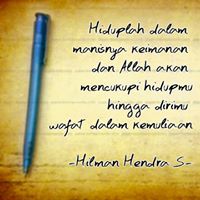 Hiduplah dalam
manisnya keimanan
dan Allah akan
mencukupi hidupmu
hingga dirimu
wafat dalam kemuliaan
-Hilman Hendra S-